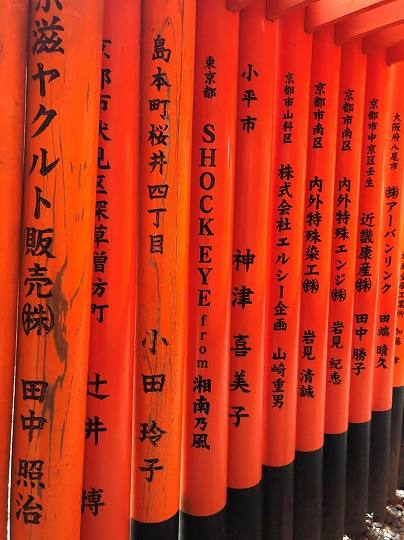 滋ヤクルト販売㈱ 田中 照治
京都市伏見区深草曽方町 辻井 博
島本町桜井四丁目 小田 玲子
東京都 SHOCK EYE from 湘南乃風
小平市 神津 喜美子
京都市山科区 株式会社エルシー企画 山崎重男
京都市南区 内外特殊染工㈱ 岩見 清誠
京都市南区 内外特殊エンジ㈱ 岩見 紀恵
京都市中京区壬生 近畿康産㈱ 田中 勝子
大阪府八尾市 ㈱アーバンリンク 田端 晴久